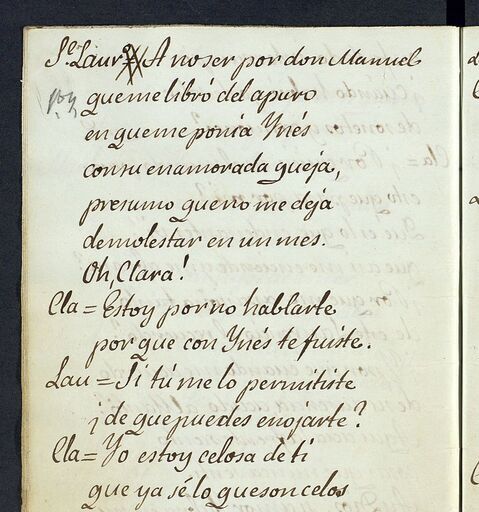 Se Laur= A no ser por don Manuel
que me libró del apuro
en que me ponia Ynés
con su enamorada queja,
presumo que no me deja
de molestar en un mes.
Oh, Clara!
Cla = Estoy por no hablarte
por que con Ynés te fuiste.
Lau = Si tú me lo permitiste
¿de que puedes enojarte?
Cla = Yo estoy celosa de ti
que ya sé lo que son celos